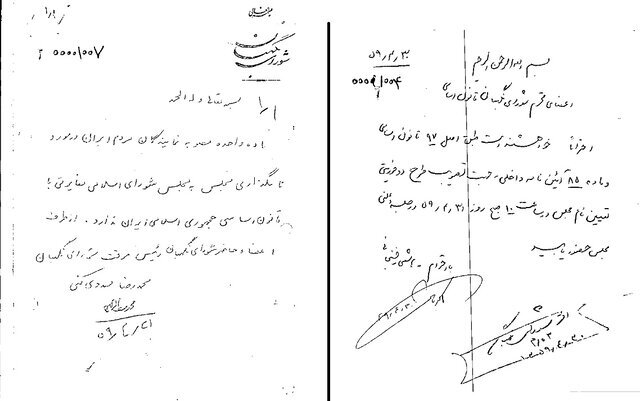 بسم الله الرحمن الرحیم
۵۹/۴/۳۰
اعضای محترم شورای نگهبان قانون اساسی
احتراماً خواهشمند است طبق اصل ۹۷ قانون اساسی
و ماده ۸۵ آئین نامه داخلی جهت تصویب طرح دو فوریتی
تعیین نام مجلس در ساعت ۱۰ صبح روز ۵۹/۴/۳۱ در جلسه علنی
مجلس حضور یابید
با احترام - هاشمی رفسنجانی
شورای نگهبان
0000/007
بسمه تعالی و له الحمد
ماده واحده مصوبه نمایندگان مردم ایران در مورد
نامگذاری مجلس به مجلس شورای اسلامی مغایرتی با
قانون اساسی جمهوری اسلامی ایران ندارد. از طرف
اعضاء حاضر شورای نگهبان رئیس موقت شورای نگهبان
محمد رضا مهدوی کنی
۵۹/۴/۳۱